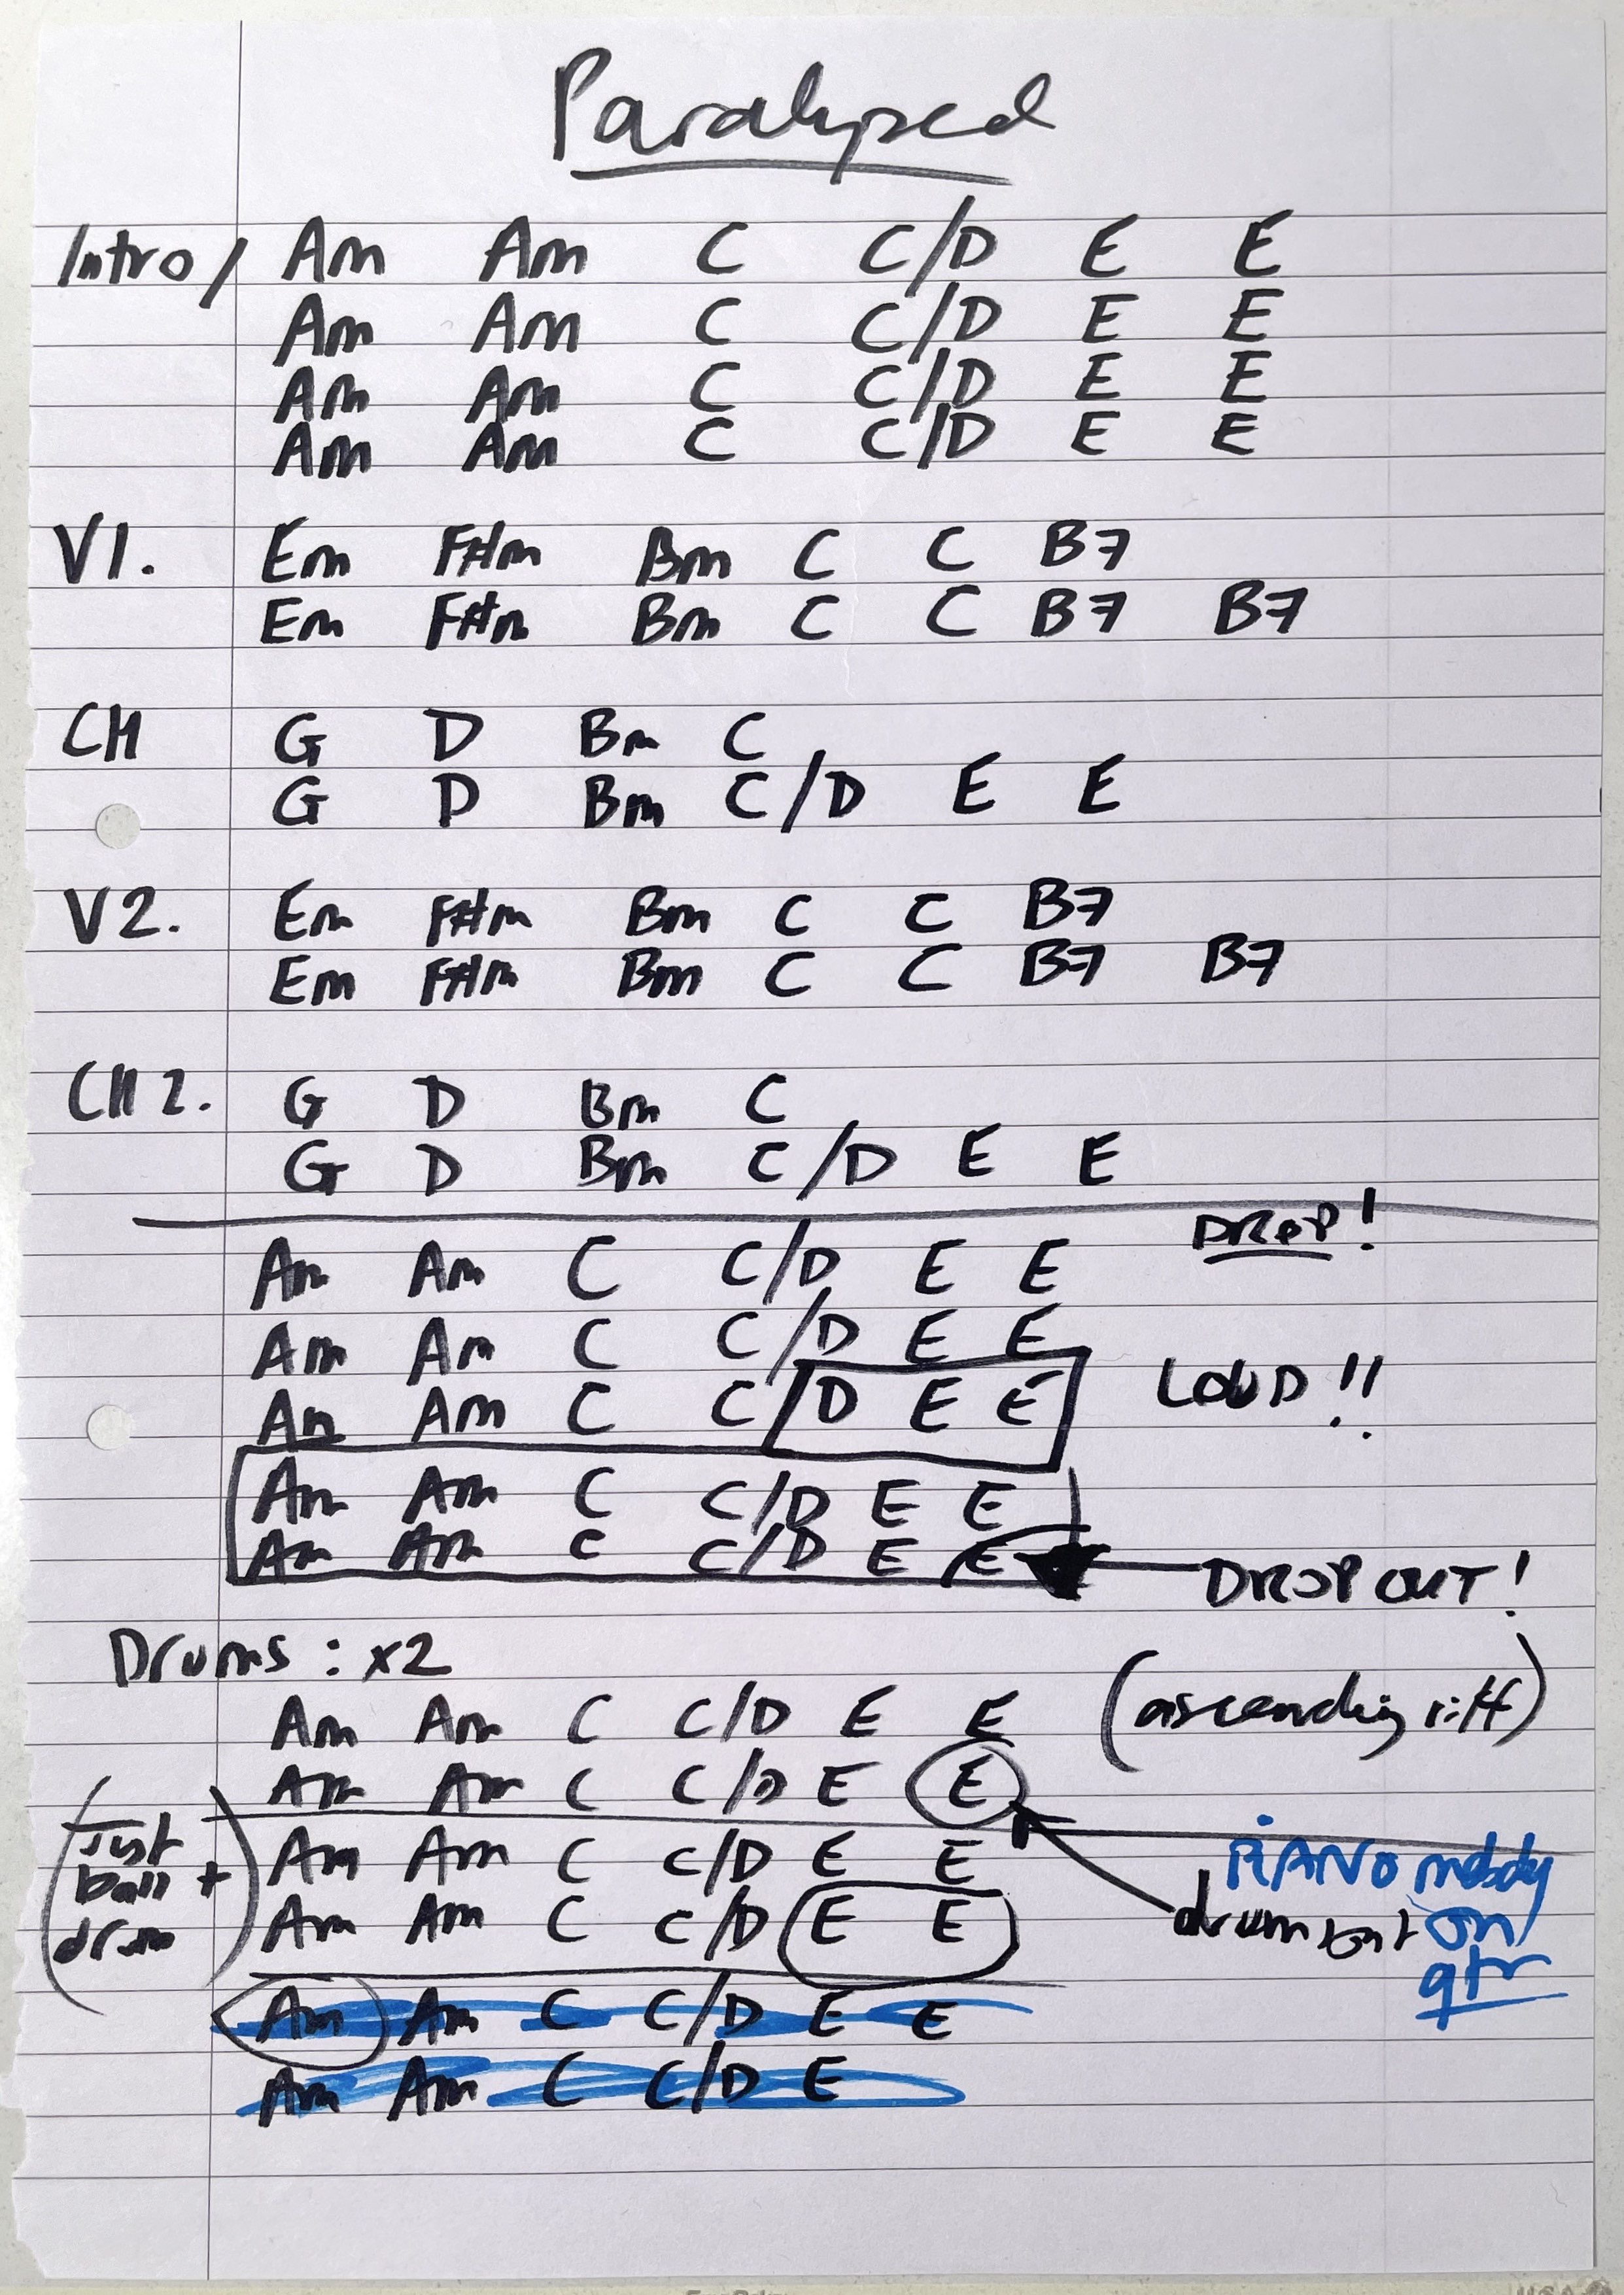 Paralysed
Intro/ Am Am C C/D E E
Am Am C C/D E E
Am Am C C/D E E
Am Am C C/D E E
V1. Em F#m Bm C C B7
Em F#m Bm C C B7 B7
CH G D Bm C
G D Bm C/D E E
V2. Em F#m Bm C C B7
Em F#m Bm C C B7 B7
CH 2. G D Bm C
G D Bm C/D E E
DROP!
Am Am C C/D E E
Am Am C C/D E E
Am Am C C/D E E LOUD!!
Am Am C C/D E E
Am Am C C/D E E DROP OUT!
Drums: x2
Am Am C C/D E E (ascending riff)
Am Am C C/D E E
(Just
+
drum)
Am Am C C/D E E
Am Am C C/D E E
PIANO melody
on
gtr
drum
Am Am C C/D E E
Am Am C C/D E